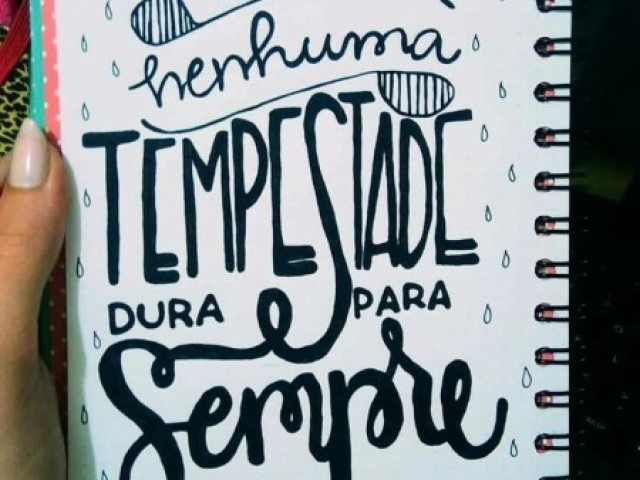 nenhuma
TEMPESTADE
DURA PARA
Sempre